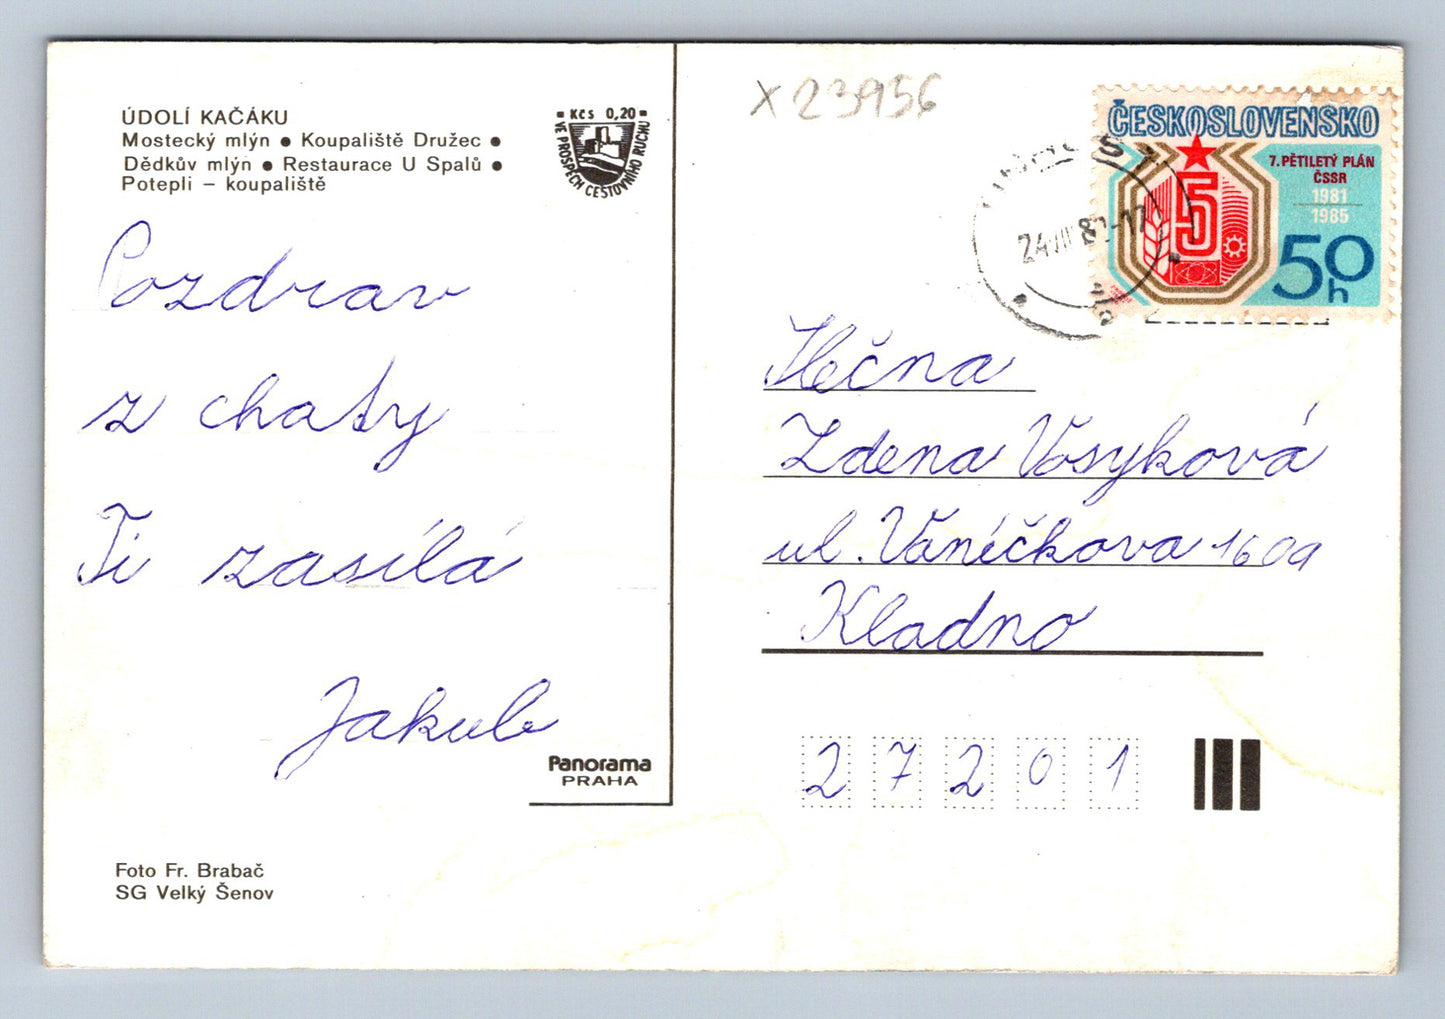 ÚDOLÍ KAČÁKU
Mostecký mlýn ● Koupaliště Družec ●
Dědkův mlýn ● Restaurace U Spalů ●
Potepli – koupaliště
Kčs 0,20
VE PROSPĚCH CESTOVNÍHO RUCHU
Pozdrav
z chaty
Ti zasílá
Jakub
Panorama
PRAHA
Foto Fr. Brabač
SG Velký Šenov
X 23956
ČESKOSLOVENSKO
7. PĚTILETÝ PLÁN
ČSSR
1981
1985
5
50
h
24.VIII.8
-17
Slečna
Zdena Vosyková
ul. Vaníčkova 1609
Kladno
27201